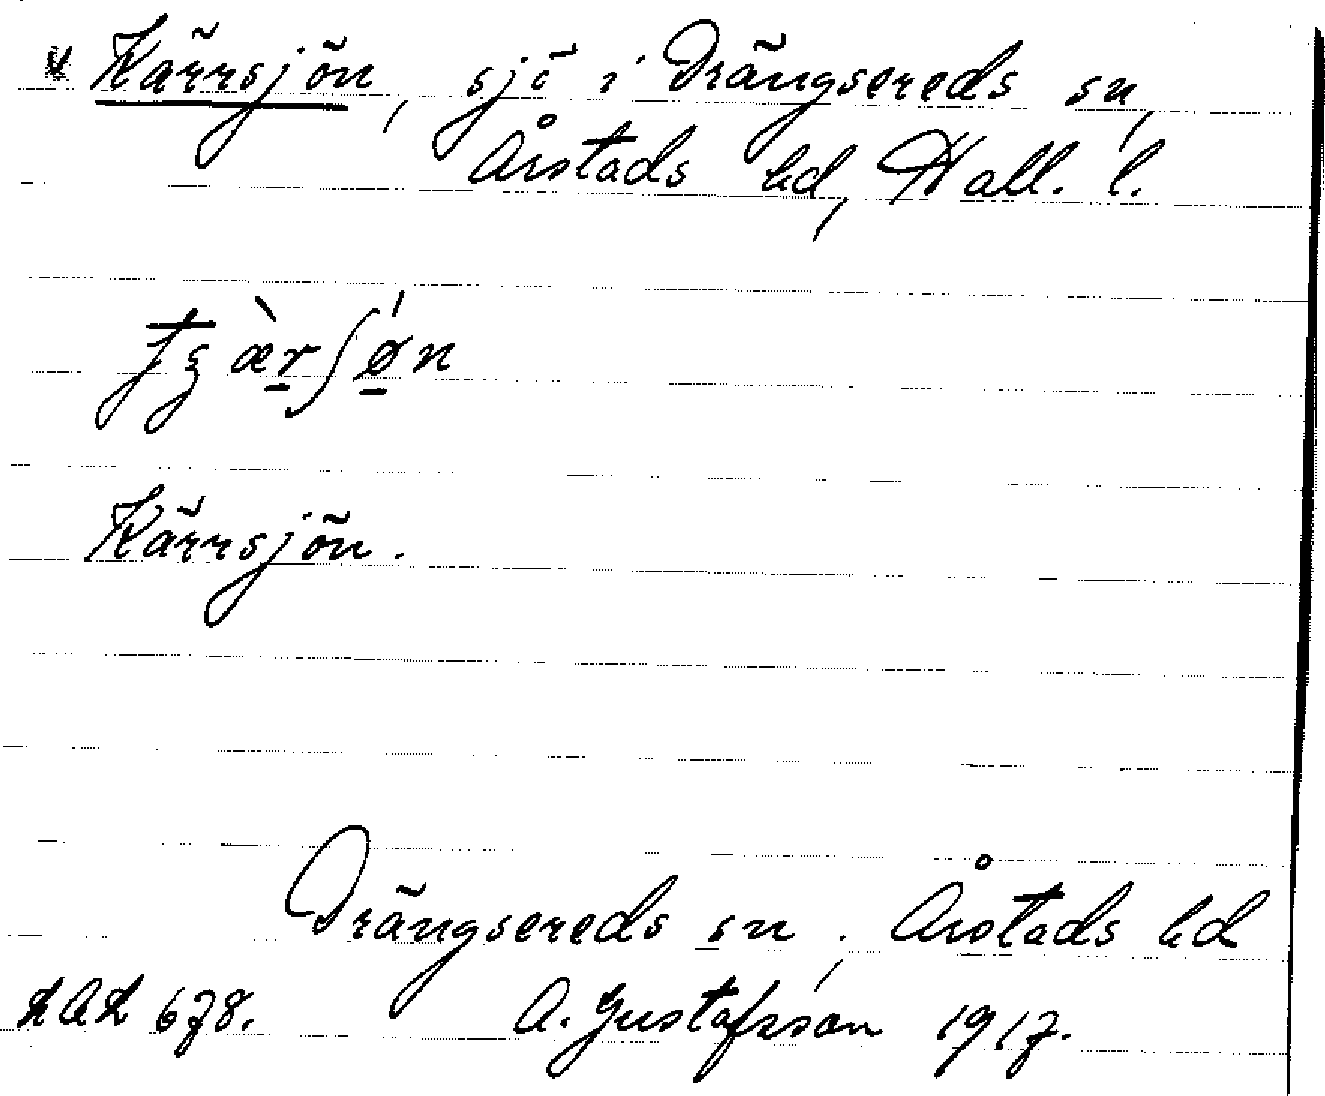 Kärrsjön, sjö i Drängsereds sn,
Årstads hd, Hall. l.
Kärrsjön.
Drängsereds sn, Årstads hd
LAL 678. A. Gustafsson 1917.